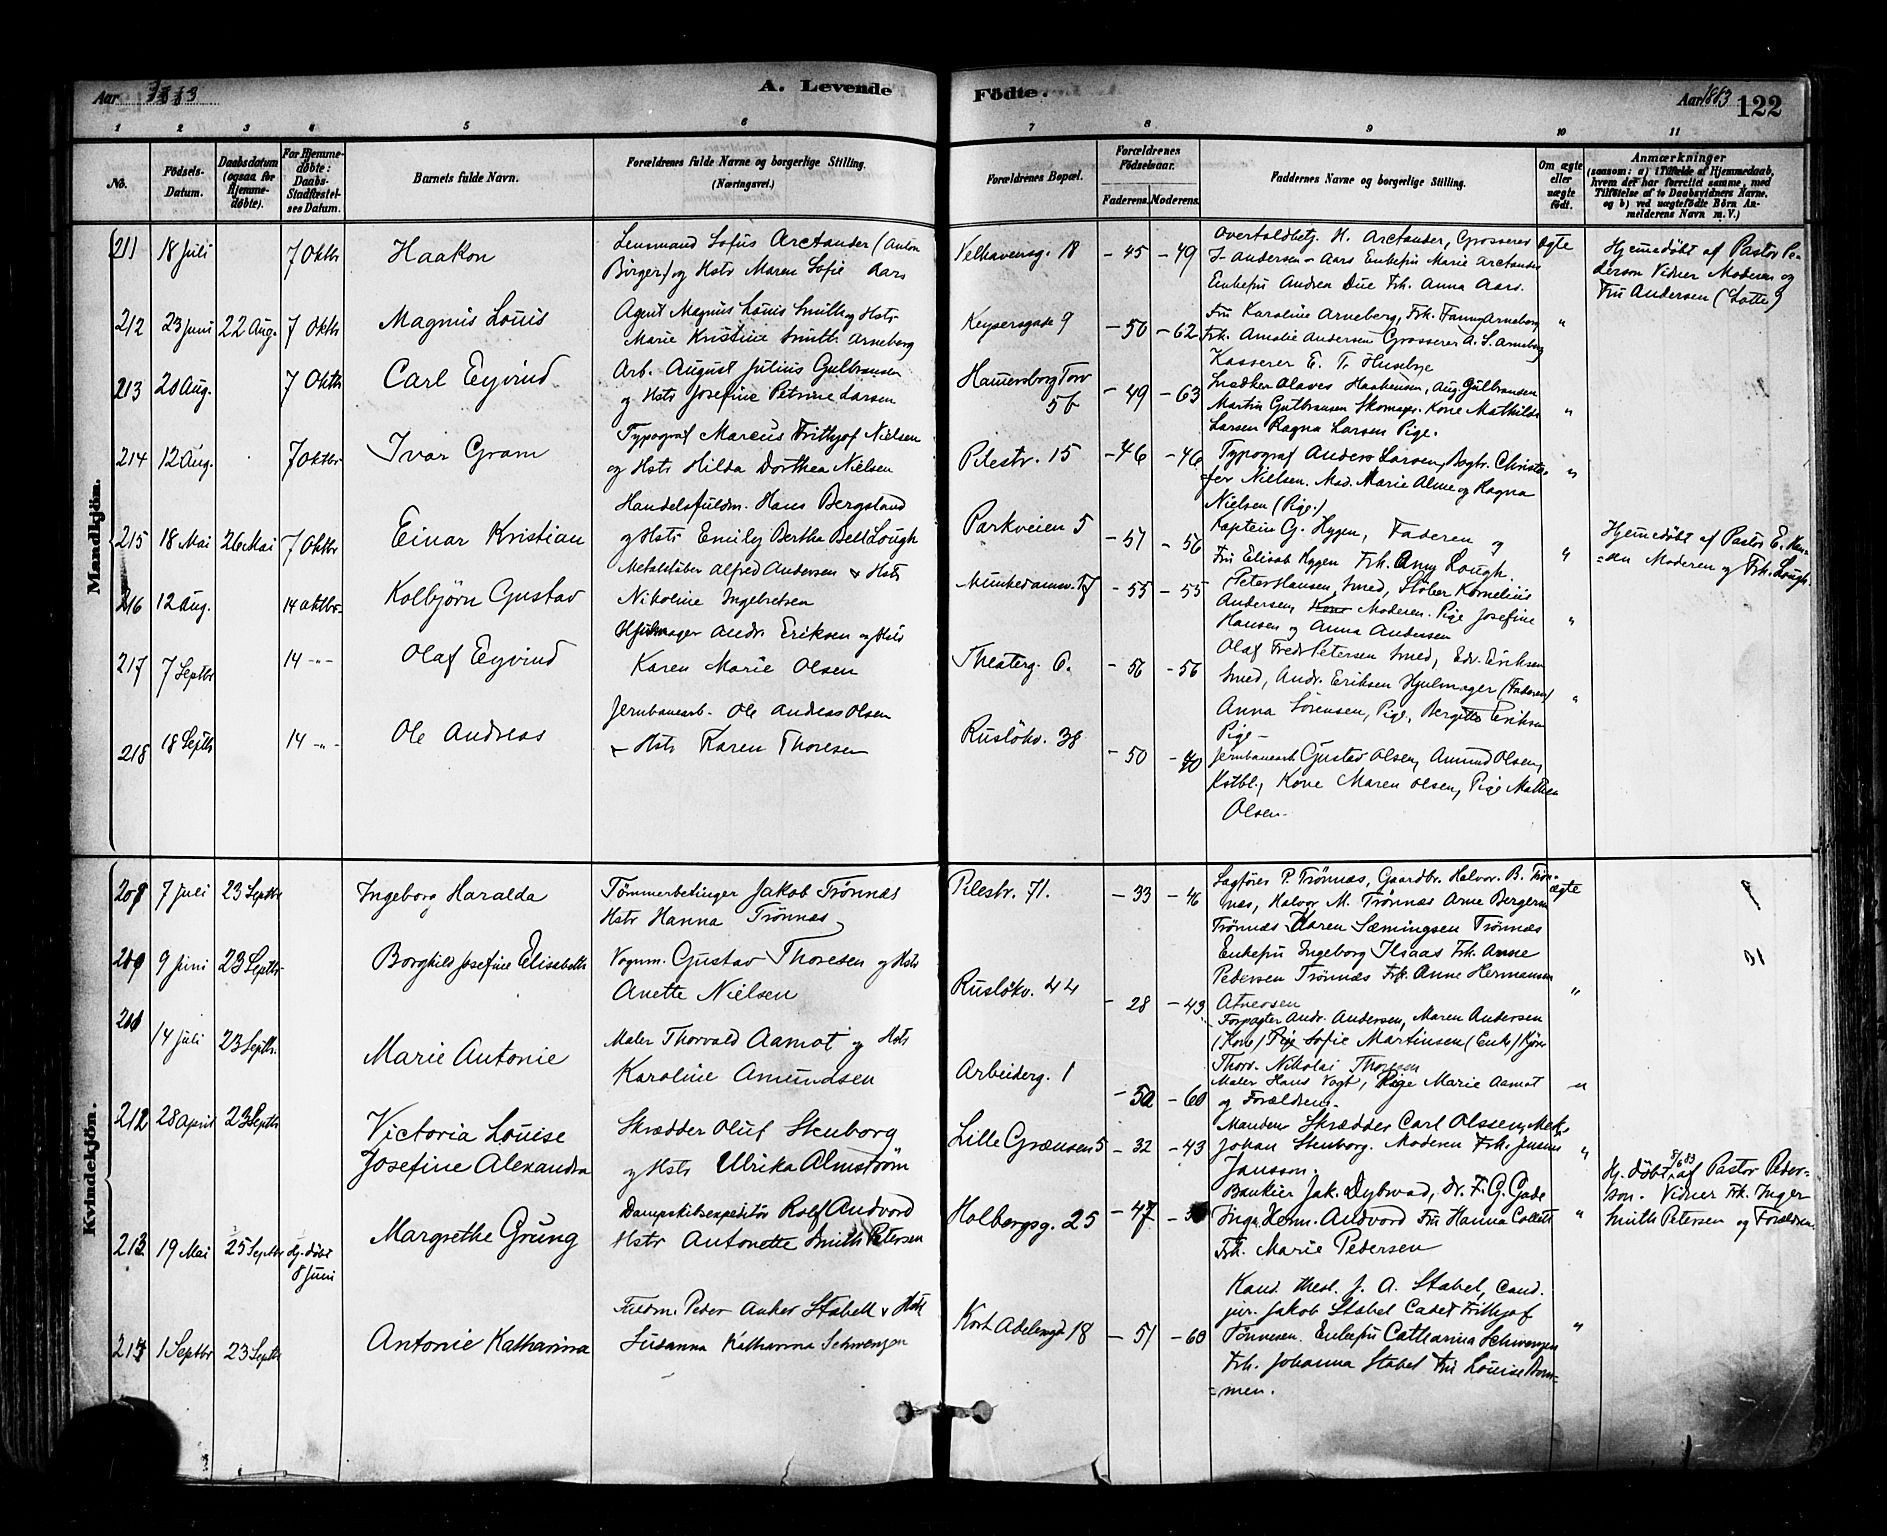 Aar 1883
A. Levende
Fødte.
Aar 1883
122
1 2 3 4 5 6 7 8 9 10 11
No.
Fødsels-
Datum.
Daabsdatum
(ogsaa for
Hjemme-
døbte).
For Hjemme-
døbte:
Daabs-
Stadfæstel-
ses Datum.
Barnets fulde Navn.
Forældrenes fulde Navne og borgerlige Stilling.
(Næringsvei.)
Forældrenes Bopæl.
Forældrenes
Fødselsaar.
Faderens. Moderens.
Faddernes Navne og borgerlige Stilling.
Om ægte
eller
uægte
født.
Anmærkninger
(saasom: a) i Tilfælde af Hjemmedaab,
hvem der har forrettet samme, med
Tilføielse af to Daabsvidners Navne.
og b) ved uægtefødte Børn An-
melderens Navn m. V.)
Mandkjön.
211 18 Juli 7 Oktbr Haakon
Lensmand Sofus Arctander (Anton
Birger) og Hstr Maren Sofie Aars
Velhavensg. 18 - 45 - 49
Overtoldbetj. H. Arctander, Grosserer
J. Andersen - Aars Enkefru Marie Arctander
Enkefru Andrea Due Frk. Anna Aars.
ægte
Hjemmedøbt af Pastor Pe-
derson Vidner Moderen og
Fru Andersen (Lotte)
212 23 Juni 22 Aug. 7 Oktbr Magnus Louis
Agent Magnus Louis Smith og Hstr
Marie Kristine Smith Arneberg
Keysersgade 9 - 50 - 62
Fru Karoline Arneberg, Frk. Fanny Arneberg
Frk. Amalie Andersen Grosserer A. S. Arneberg
Kasserer E. Tr. Huseby
"
213 20 Aug. 7 Oktbr Carl Eyvind
Arb. August Julius Gulbransen
og Hstr Josefine Petrine Larsen
Hauersborg Torv
5b - 49 - 63
Snedker Olaves Haakensen, Aug. Gulbransen
Martin Gulbransen Skomager. Kone Mathilde
Larsen Ragna Larsen Pige.
"
214 12 Aug. 7 Oktbr Ivar Gram
Typograf Marcus Frithjof Nielsen
og Hstr Hilda Dorthea Nielsen
Pilestr. 15 - 46 - 46
Typograf Anders Larsen, Bogtr. Christo-
fer Nielsen. Mad. Marie Alme og Ragna
Nielsen (Pige.)
"
215 18 Mai 26 Mai 7 Oktbr Einar Kristian
Handelsfuldm. Hans Bergsland
og Hstr Emily Bertha Bell Lough
Parkveien 5 - 57 - 56
Kaptein G. Hygen, Faderen og
Fru Elisab Hygen Frk. Amy Lough.
"
Hjemmedøbt af Pastor E. Han-
=en Moderen og Frk. Lough.
216 12 Aug. 14 Oktbr. Kolbjörn Gustav
Metalstøber Alfred Andersen & Hstr
Nikoline Ingebretsen
Munkedamsv. - 55 - 55
Peter Hansen, Smed, Støber Kornelius
Andersen, Moderen. Pige Josefine
Hansen og Anna Andersen
"
217 7 Septbr 14 -"- Olaf Eyvind
Hjulmager Andr. Eriksen og Hstr
Karen Marie Olsen
Theaterg. 6. - 56 - 56
Olaf Fredr Petersen Smed, Edv. Eriksen
Smed, Andr. Eriksen Hjulmager (Faderen)
Anna Sørensen, Pige, Bergitte Eriksen
Pige -
"
218 18 Septbr 14 -"- Ole Andreas
Jernbanearb. Ole Andreas Olsen
& Hstr Karen Thoresen
Rusløkv. 38 - 50
Jernbanearb Gustav Olsen, Amund Olsen,
Kstbl., Kone Maren Olsen, Pige Mathea
Olsen.
Kvindekjön.
7 Juli 23 Septbr Ingeborg Haralda
Tømmerbetinger Jakob Trønnæs
Hstr Hanna Trønnæs
Pilestr. 71. - 33 - 46
Sagfører P. Trønnæs, Gaardbr. Halvor B. Trøn-
næs, Halvor M. Trønnæs Arne Bergerm
Trønnæs Karen Sæmingsen Trønnæs
Enkefru Ingeborg Ilsaas Frk. Anne
Pedersen Trønnæs Frk. Anne Hermansen
ægte
9 Juni 23 Septbr Borghild Josefine Elisabeth
Vognm. Gustav Thoresen og Hstr
Anette Nielsen
Rusløkv. 44 - 28 - 43
Forpagter Andr. Andersen, Maren Andersen
(Kone) Pige Sofie Martinsen (Enke)
Thorv. Nikolai Thoresen
"
14 Juli 23 Septbr. Marie Antonie
Maler Thorvald Aamot og Hstr
Karoline Amundsen
Arbeiderg. 1 - 50 - 60
Maler Hans Vogt, Pige Marie Aamot
og Forældrene.
"
212 28 April 23 Septbr Victoria Louise
Josefine Alexandra
Skrædder Oluf Stenborg
og Hstr Ulrika Almström
Lille Grænsen 5 - 32 - 43
Manden Skrædder Carl Olssen, Mek.
Johan Stenborg. Moderen Frk.
Jansson.
"
213 19 Mai 25 Septbr Hj. døbt
8 Juni
Margrethe Grüng
Dampskibsexpeditør Rolf Andvord
Hstr Antonette Smith Petersen
Holbergsg. 25 - 47
Bankier Jak. Dybwad, Dr. F. G. Gade
Ingr. Herm. Andvord Fru Hanna Collett
Frk. Marie Pedersen
"
Hj. døbt 8/6 83 af Pastor Peder-
son. Vidner Frk. Inger
Smith Petersen og Forældre.
1 Septbr 23 Septbr Antonie Katharina
Fuldm. Peder Anker Stabell & Hstr
Susanna Katharina Schwenzen
Kort Adelersgd 18 - 51 - 60
Kand. theol. J. A. Stabel, Cand.
jur. Jakob Stabel Cadet Frithjof
Tønnesen. Enkefru Catharina Schwenzen
Frk. Johanna Stabel Fru Louise Bom-
=men.
"